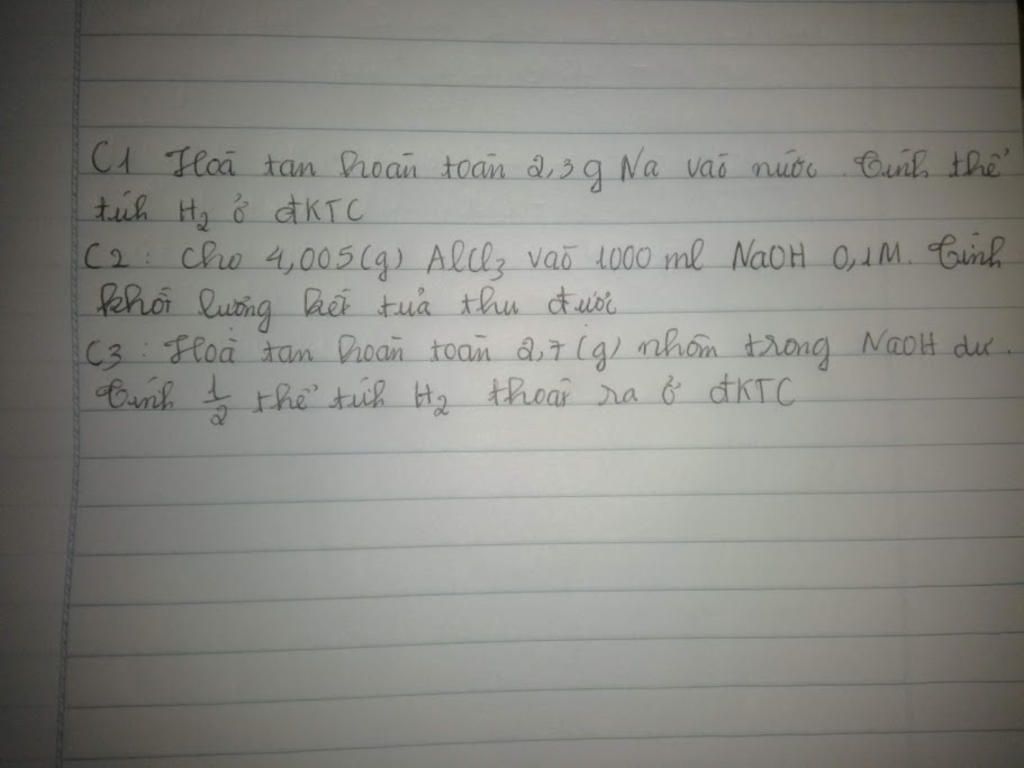 C1 Hoà tan hoàn toàn 2,3g Na vào nước. Tính thể
tích H2 ở đKTC
C2: Cho 4,005(g) AlCl3 vào 1000 ml NaOH 0,1M. Tính
khối lượng kết tủa thu được
C3: Hoà tan hoàn toàn 2,7(g) nhôm trong NaOH dư.
Tính 1/2 thể tích H2 thoát ra ở đKTC